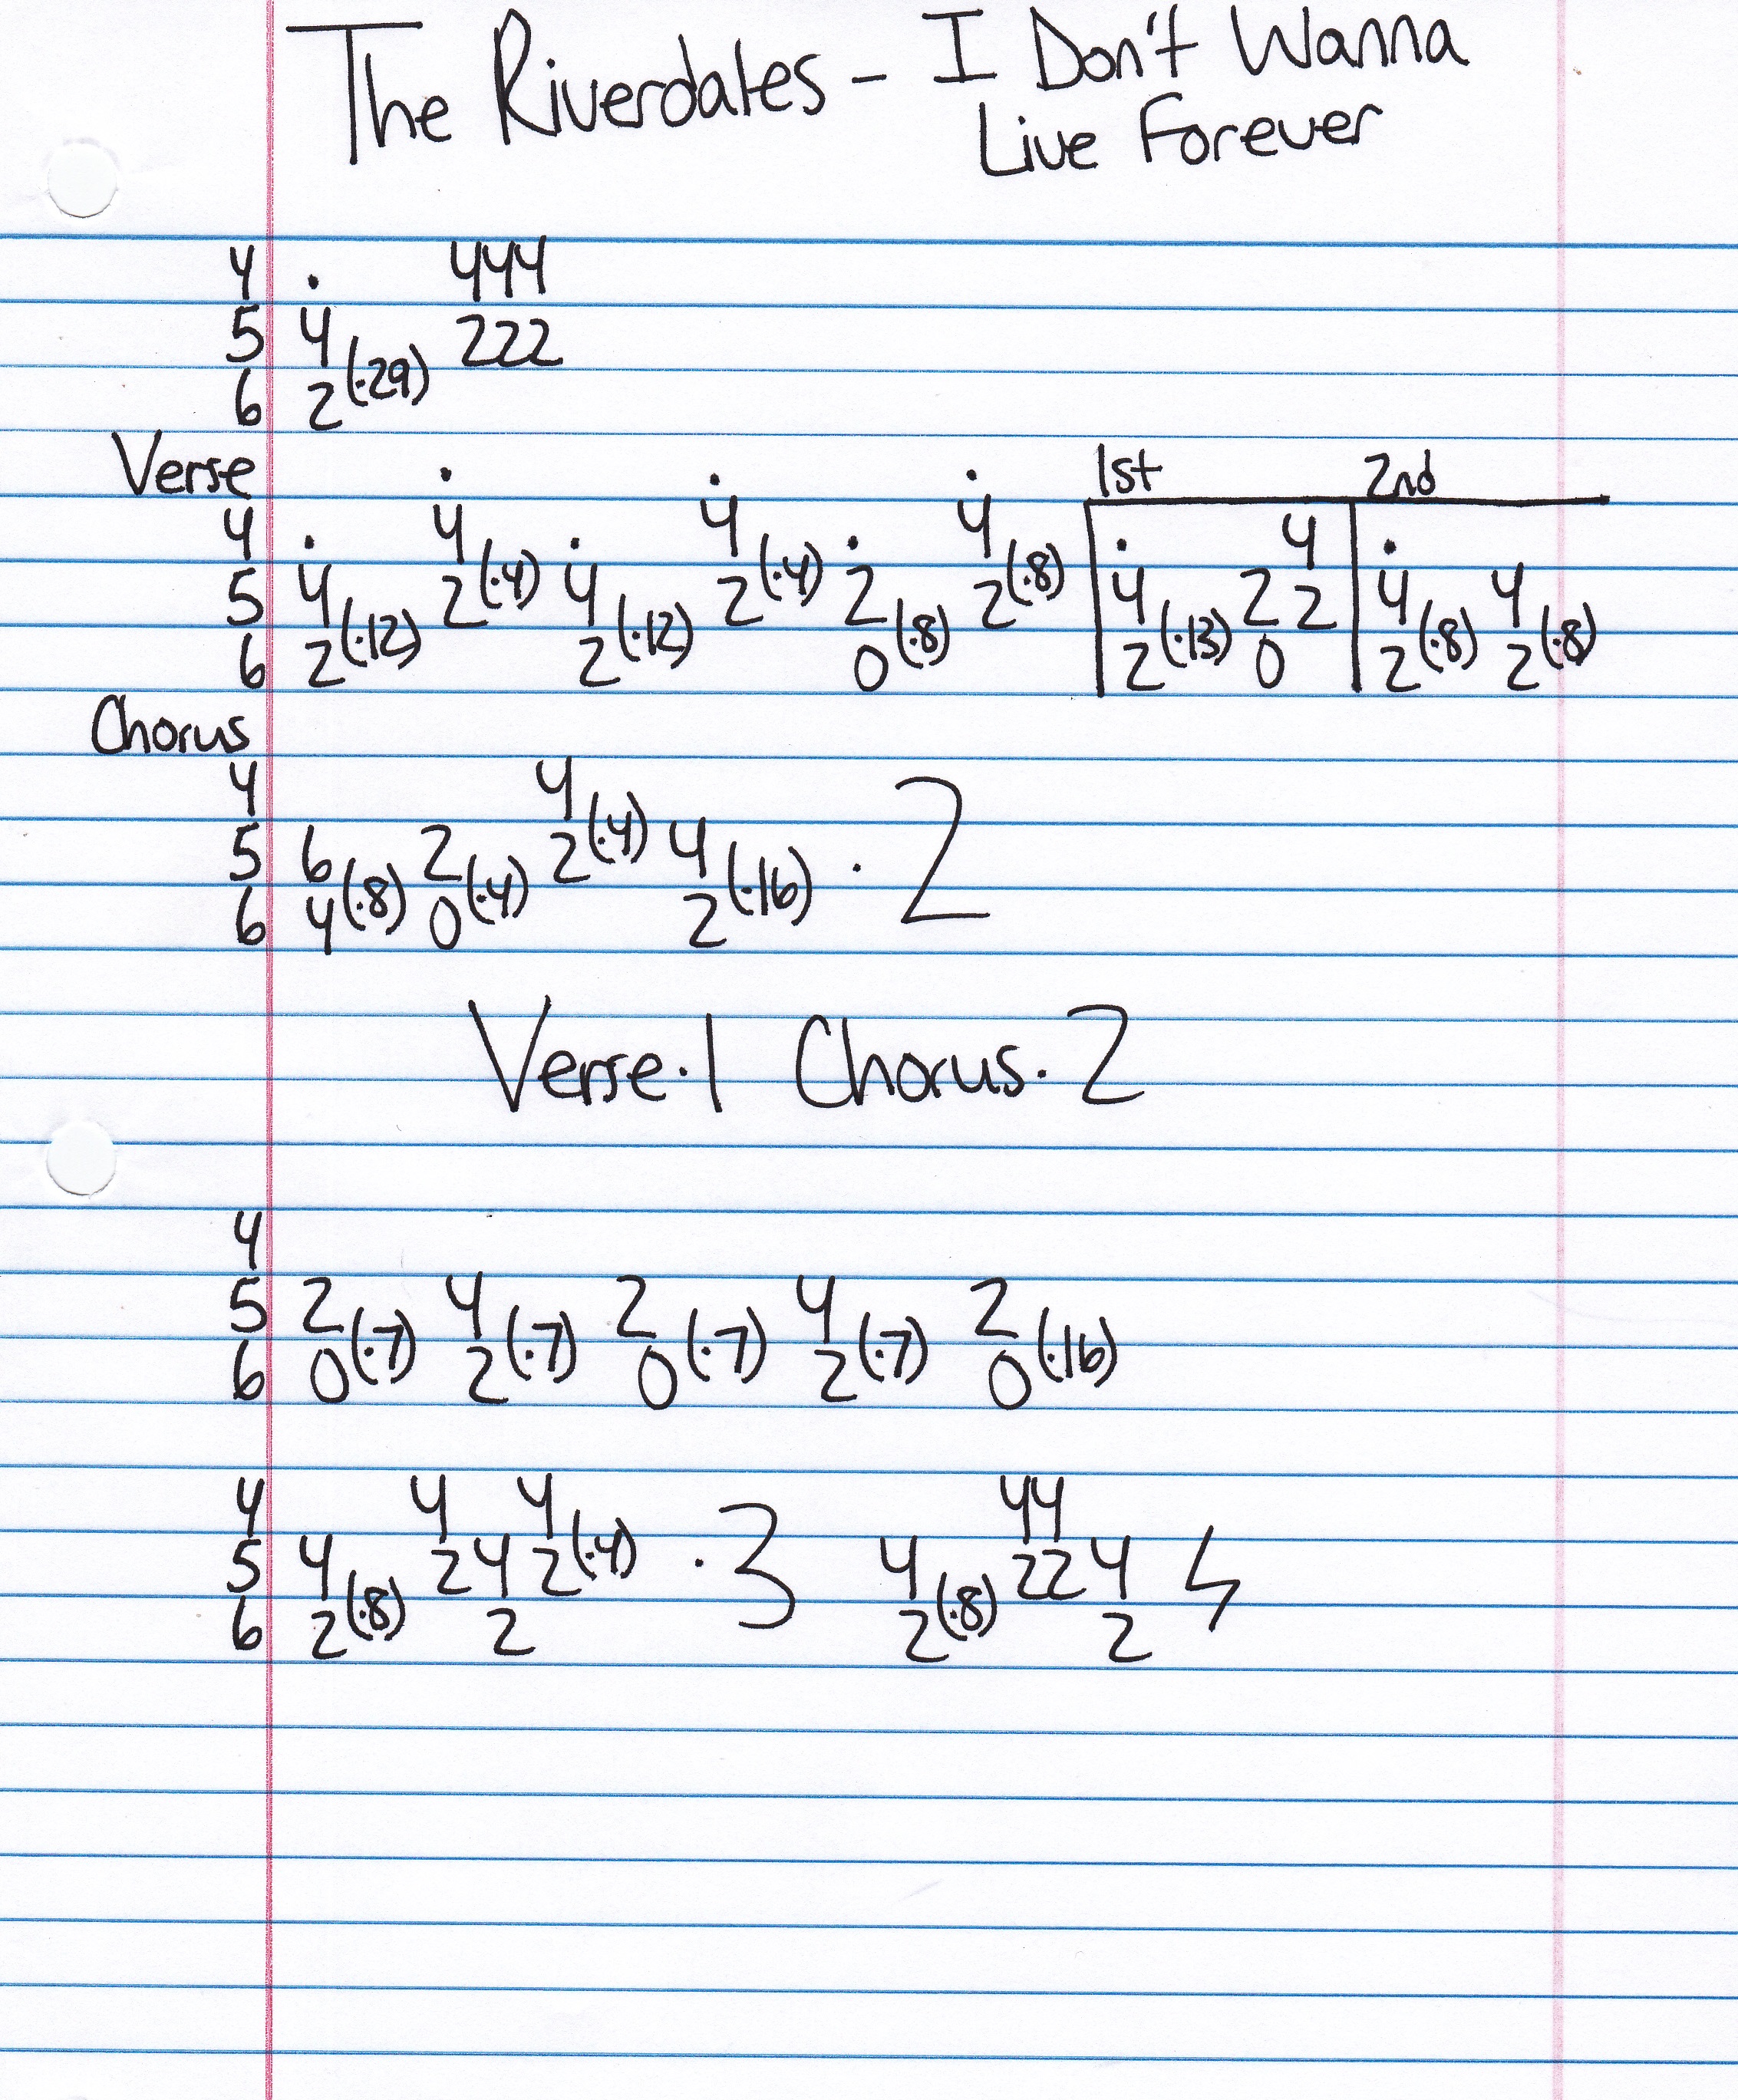 The Riverdales - I Don't Wanna
Live Forever
4 · 444
5 4 222
6 2 (·29)
Verse · · · 1st 2nd
4 · 4 · 4 · 4 · 4 ·
5 4 2 (·4) 4 2 (·4) 2 2 (·8) 4 2 2 4 4
6 2 (·12) 2 (·12) 0 (·8) 2 (·13) 0 2 (·8) 2 (·8)
Chorus
4 4
5 6 2 2 (·4) 4 · 2
6 4 (·8) 0 (·4) 2 (·16)
Verse · 1 Chorus · 2
4
5 2 4 2 4 2
6 0 (·7) 2 (·7) 0 (·7) 2 (·7) 0 (·16)
4 4 4 44
5 4 2 4 2 (·4) · 3 4 22 4
6 2 (·8) 2 2 (·8) 2